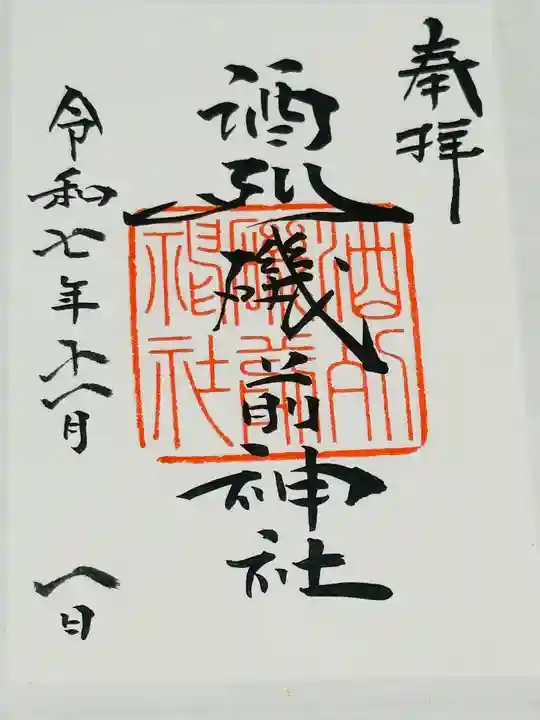 奉拝
酒列磯前神社
酒列磯前神社
令和七年十一月八日